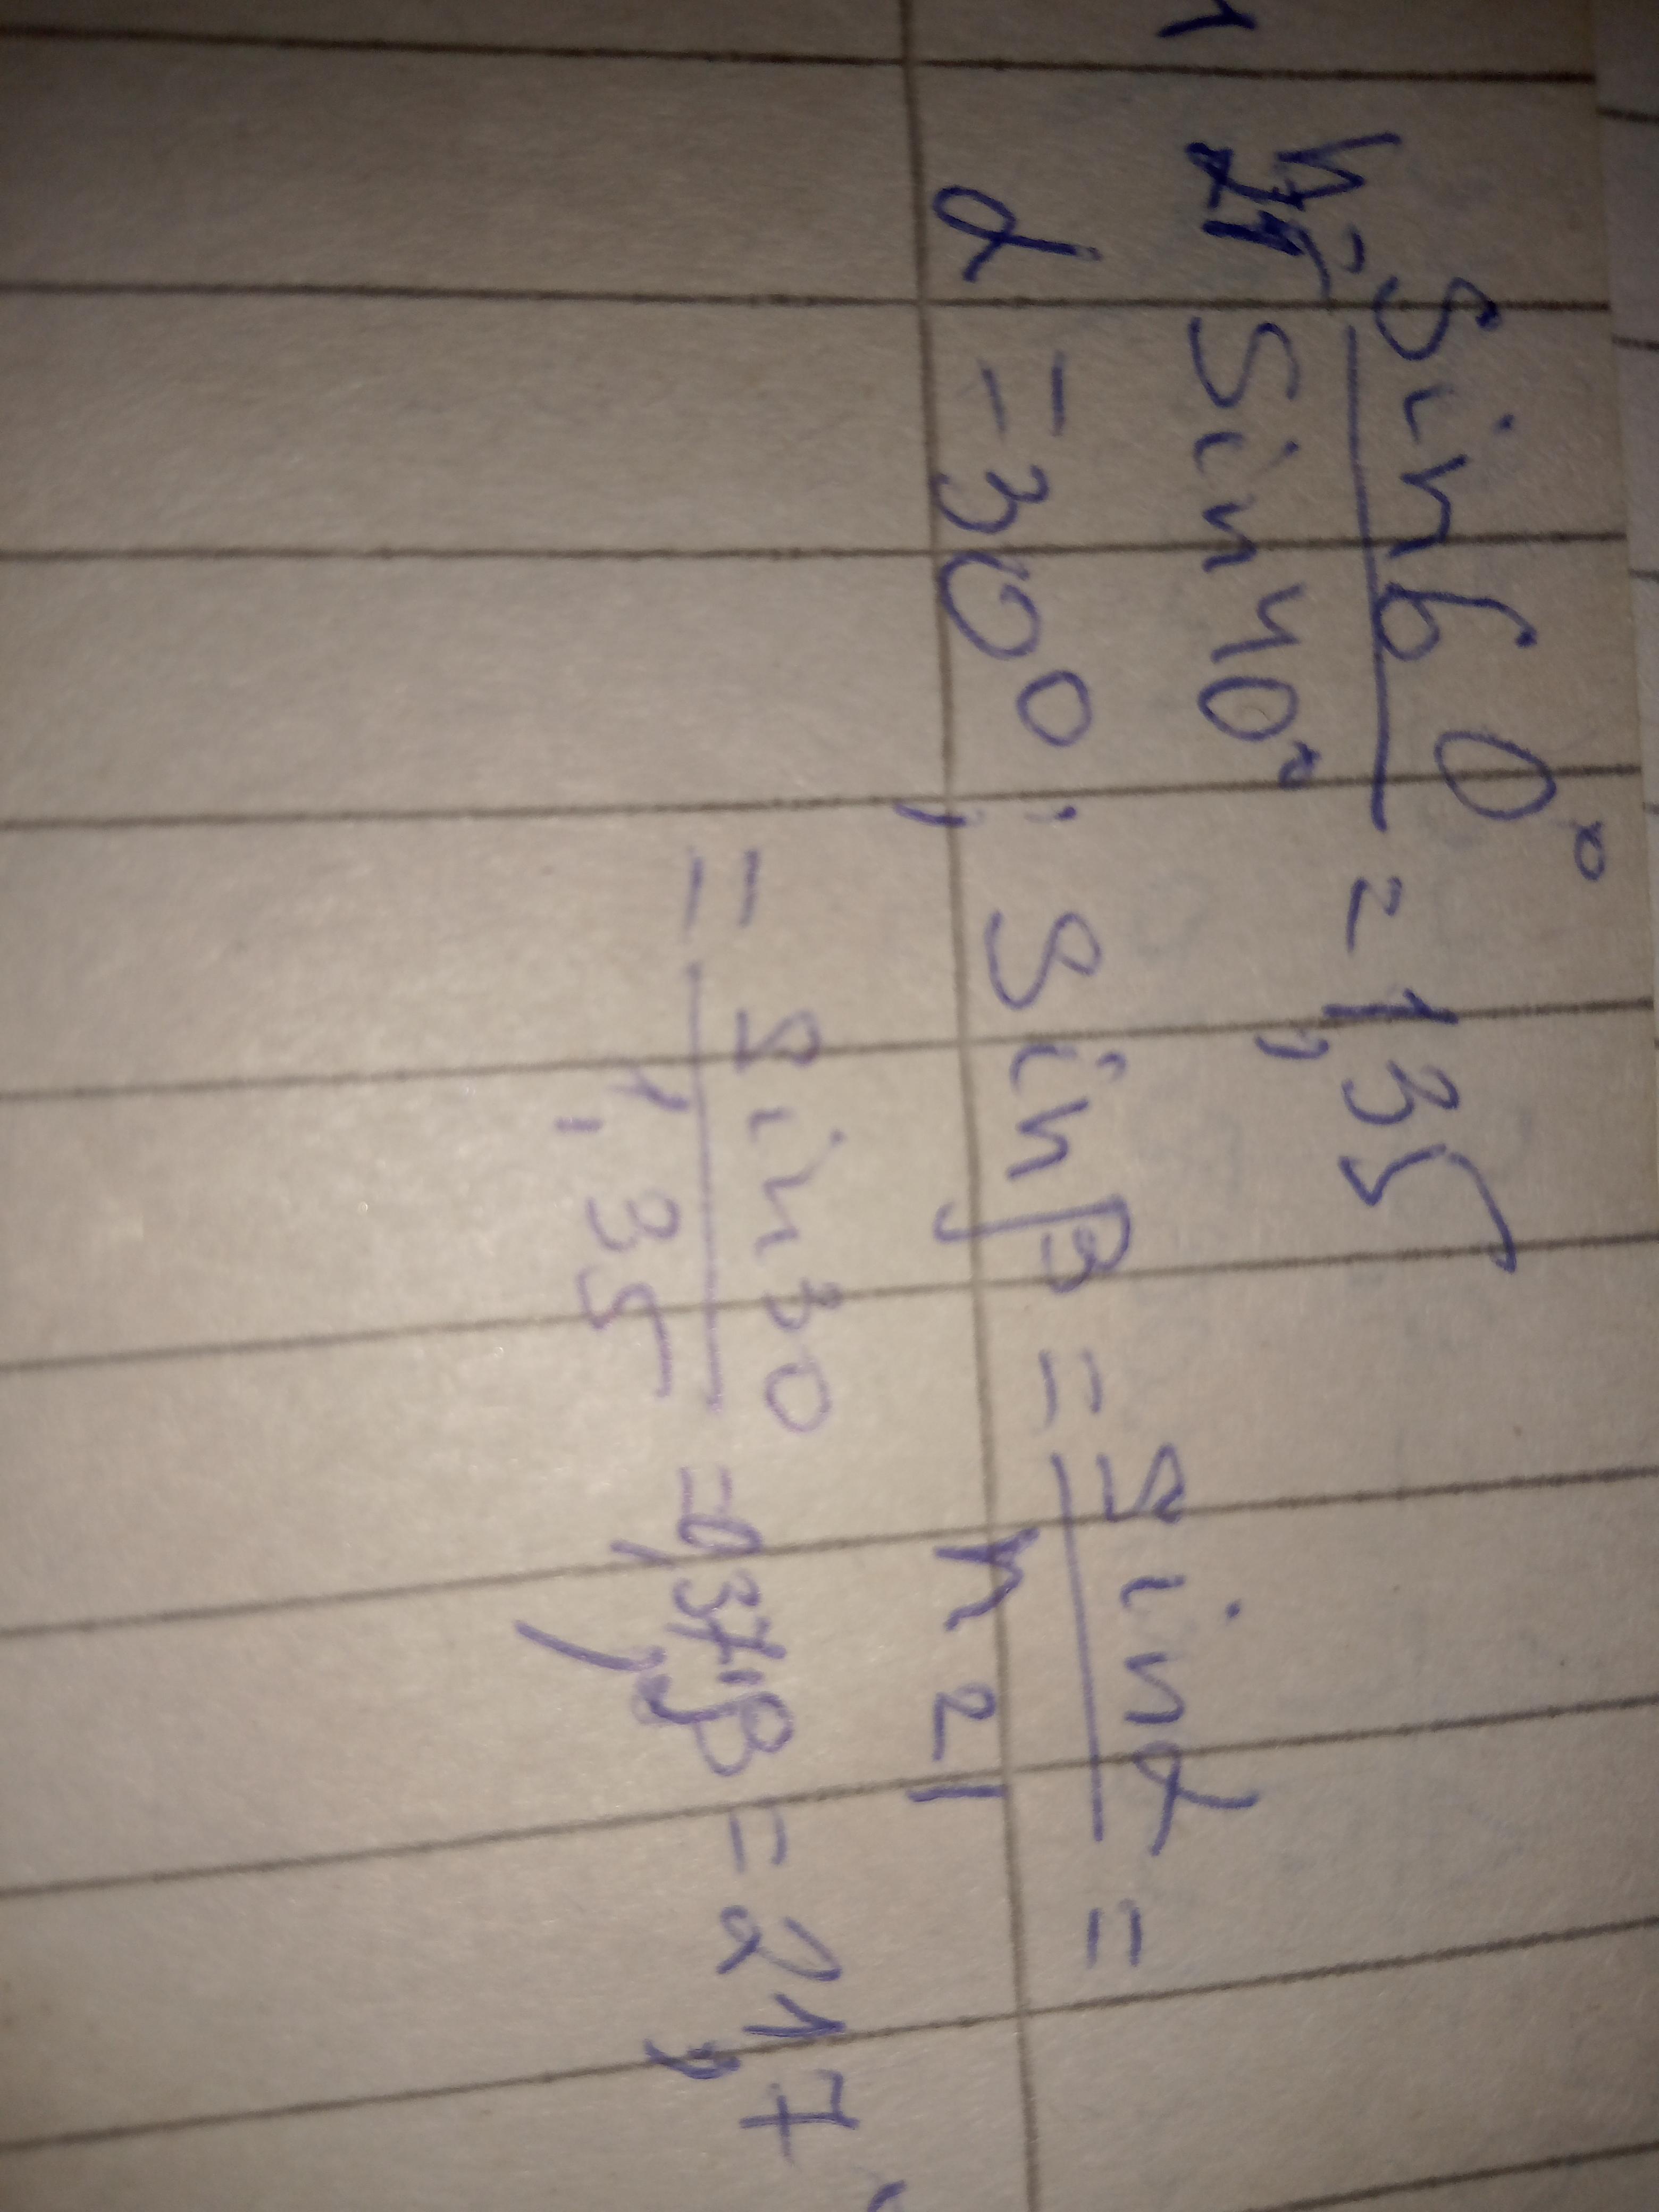 n₂₁ = sin60° / sin40° = 1,35
α = 30°; sin β = sin α / n 21 =
= sin30 / 1,35 = 0,37; β = 21,7°